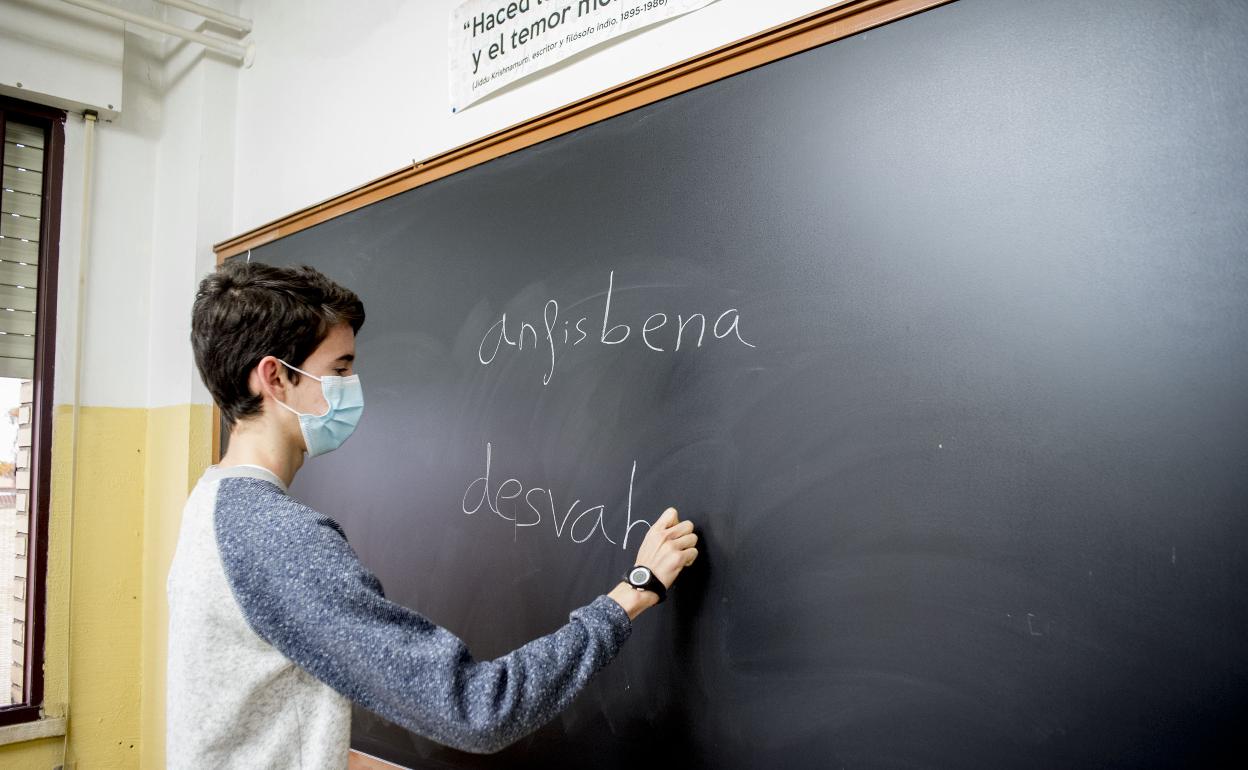 “Haced lo
y el temor mo
(Jiddu Krishnamurti, escritor y filósofo indio. 1895-1986)
anfisbena
desvah